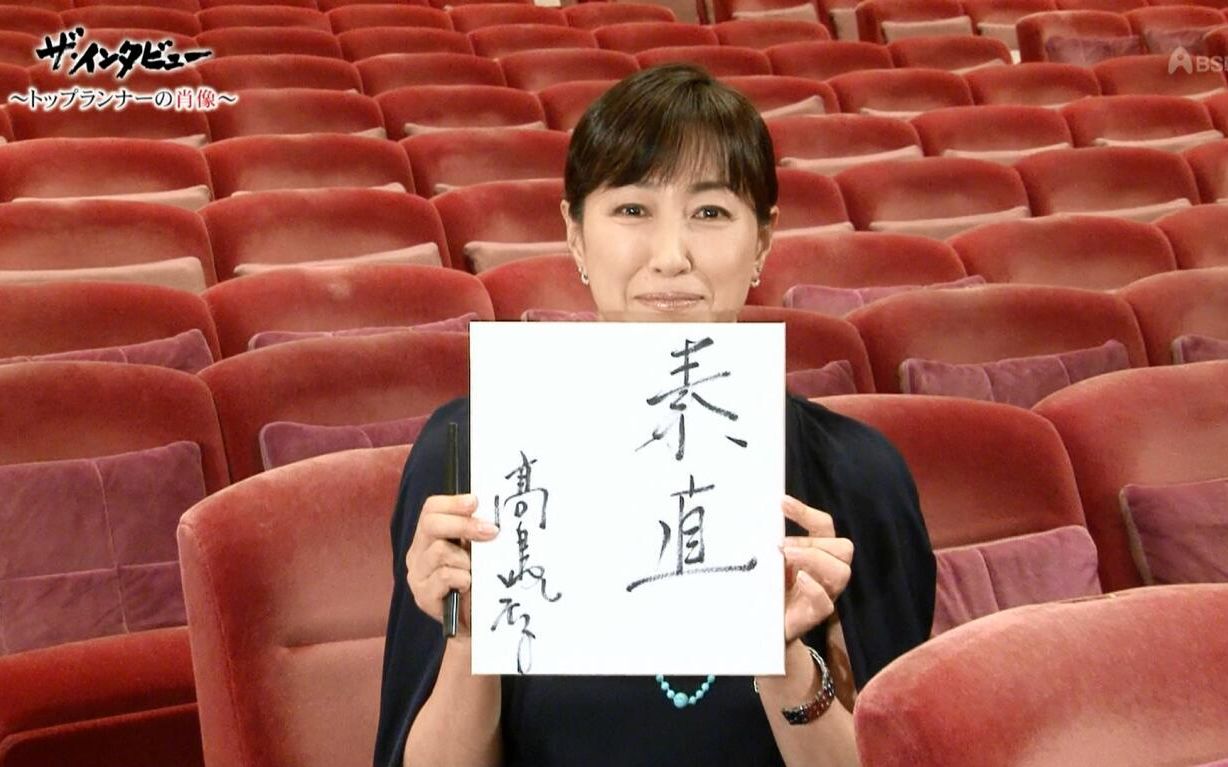 ザ・インタビュー
～トップランナーの肖像～
BS
素直
高島